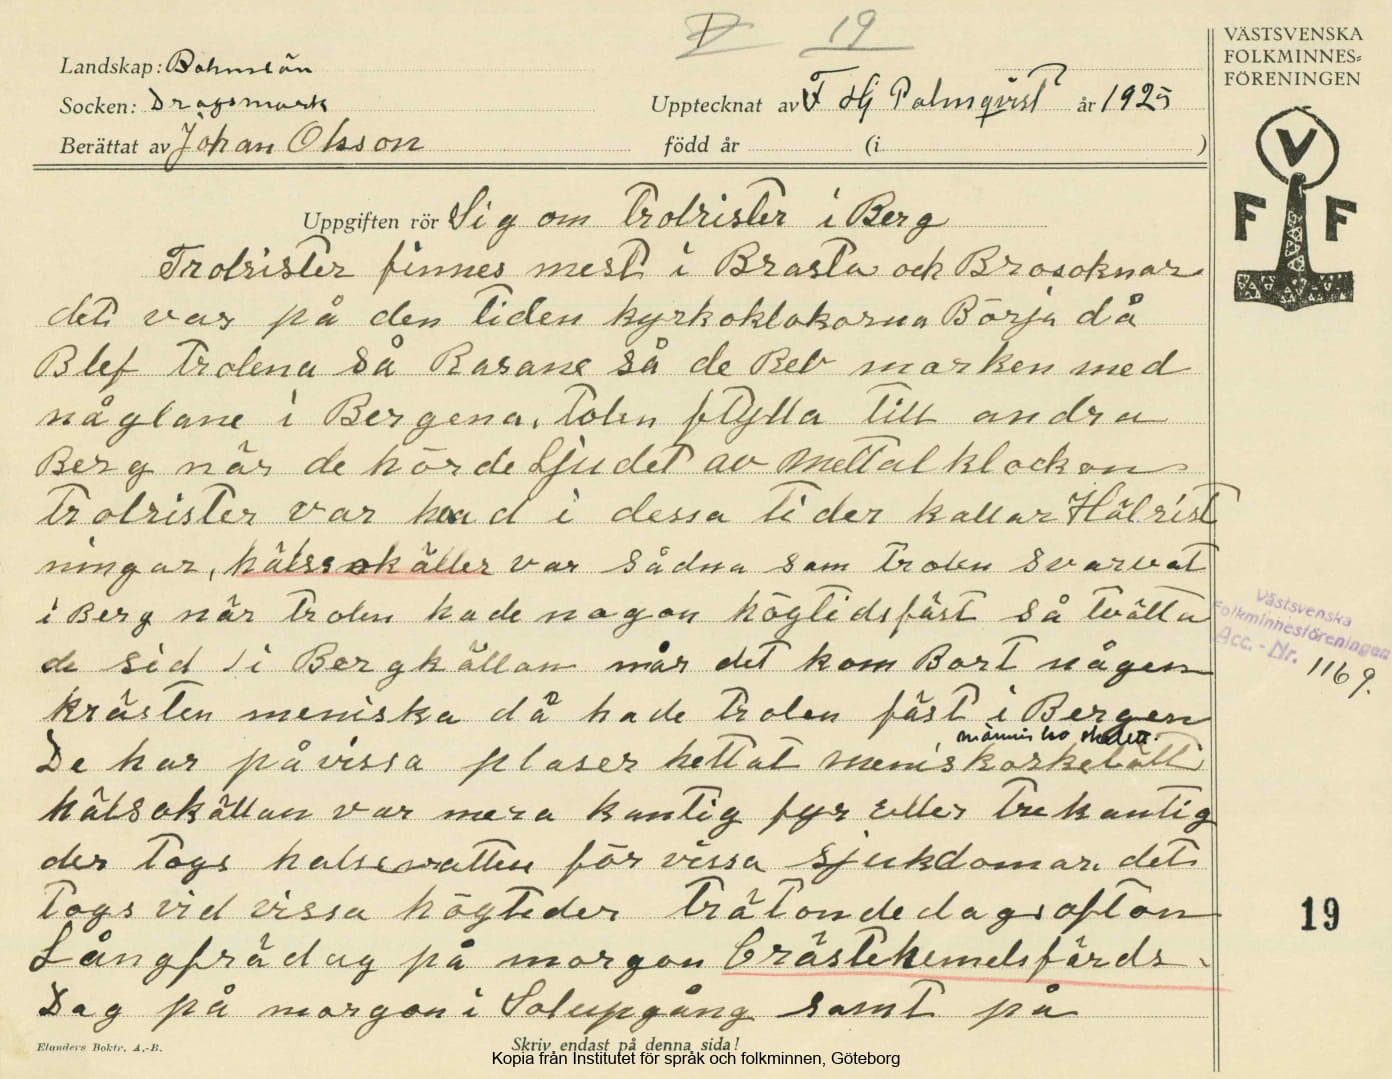 V 19
VÄSTSVENSKA
FOLKMINNES=
FÖRENINGEN
Landskap: Bohuslän
Socken: Dragsmark
Upptecknat av F Hj Palmqvist år 1925
Berättat av Johan Olsson
född år (i )
V
F F
Uppgiften rör Sig om trolrister i Berg
Trolrister finnes mest i Brasta och Brosoknar
det var på den tiden kyrkoklokorna Börja då
Blef trolena så Rasane så de Rev marken med
någlane i Bergena. tolen flytta till andra
Berg när de hörde Ljudet av Mettal klockon
trolrister var had i dessa tider kallar Hälrist
ningar, hälsokäller var sådna som trolen svarvat
i Berg när trolen hade nogon högtidsfäst så tvätta
de sid i Bergkällan når det kom Bort någen
kristen meniska då hade trolen fäst i Bergen
människo skelett.
De har på vissa plaser hettat meniskorkelätt
hälsokällan var mera kantig fyr eller trekantig
der togs halsovatten för vissa sjukdomar det
togs vid vissa högtider trätondedagsofton
Långfrädag på morgon Cråstehimelsfärds-
Dag på morgon i Solupgång samt på
Västsvenska
Folkminnesföreningen
Acc.-Nr. 1169.
19
Elanders Boktr. A.-B.
Skriv endast på denna sida!
Kopia från Institutet för språk och folkminnen, Göteborg